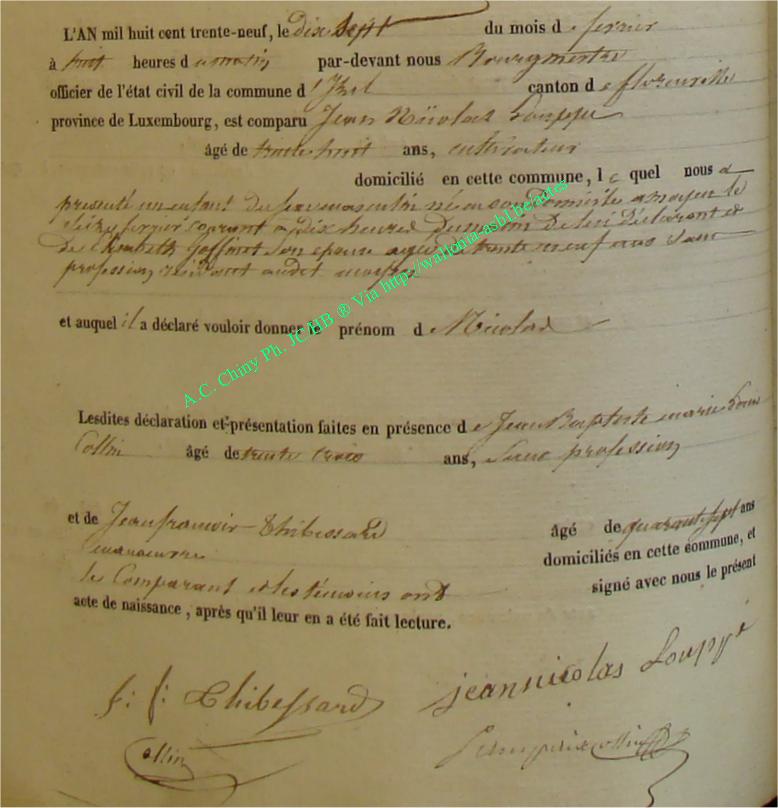 L'AN mil huit cent trente-neuf, le dix Sept du mois d e fevrier
à huit heures d u matin par-devant nous Bourgmestre
officier de l'état civil de la commune d' Izel canton d e florenville
province de Luxembourg, est comparu Jean Nicolas Louppe
âgé de trente huit ans, cultivateur
domicilié en cette commune, l e quel nous a
presenté un enfant du sexe masculin né en son domicile a moyen le
fevrier courant a dix heures Du De lui Déclarant et
de Elisabeth Goffinet Son epouse agée de trente neuf ans Sans
profession residant audit moyen
et auquel il a déclaré vouloir donner le prénom d e Nicolas
Lesdites déclaration et présentation faites en présence d e Jean Baptiste marie Louis
Collin âgé de trente trois ans, Sans profession
et de Jean francois Thibessard âgé de quarante sept ans
manoeuvre domiciliés en cette commune, et
le Comparant et les témoins ont signé avec nous le présent
acte de naissance, après qu'il leur en a été fait lecture.
f: f: Thibessard jeannicolas Louppe
Collin
A.C. Chiny Ph. JC HB ® Via http://wallonia-asbl.be/actes